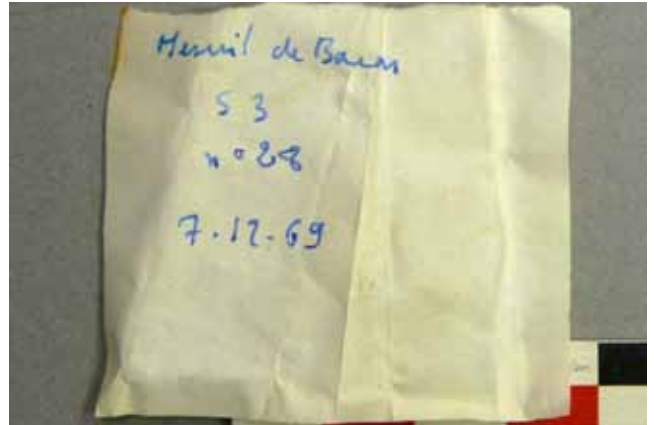 Mesnil de Baron
S 3
n° 28
7.12.69